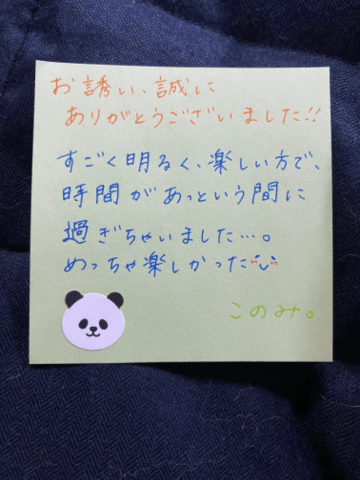 お誘い、誠に
ありがとうございました!!
すごく明るく、楽しい方で、
時間があっという間に
過ぎちゃいました…。
めっちゃ楽しかった
このみ。